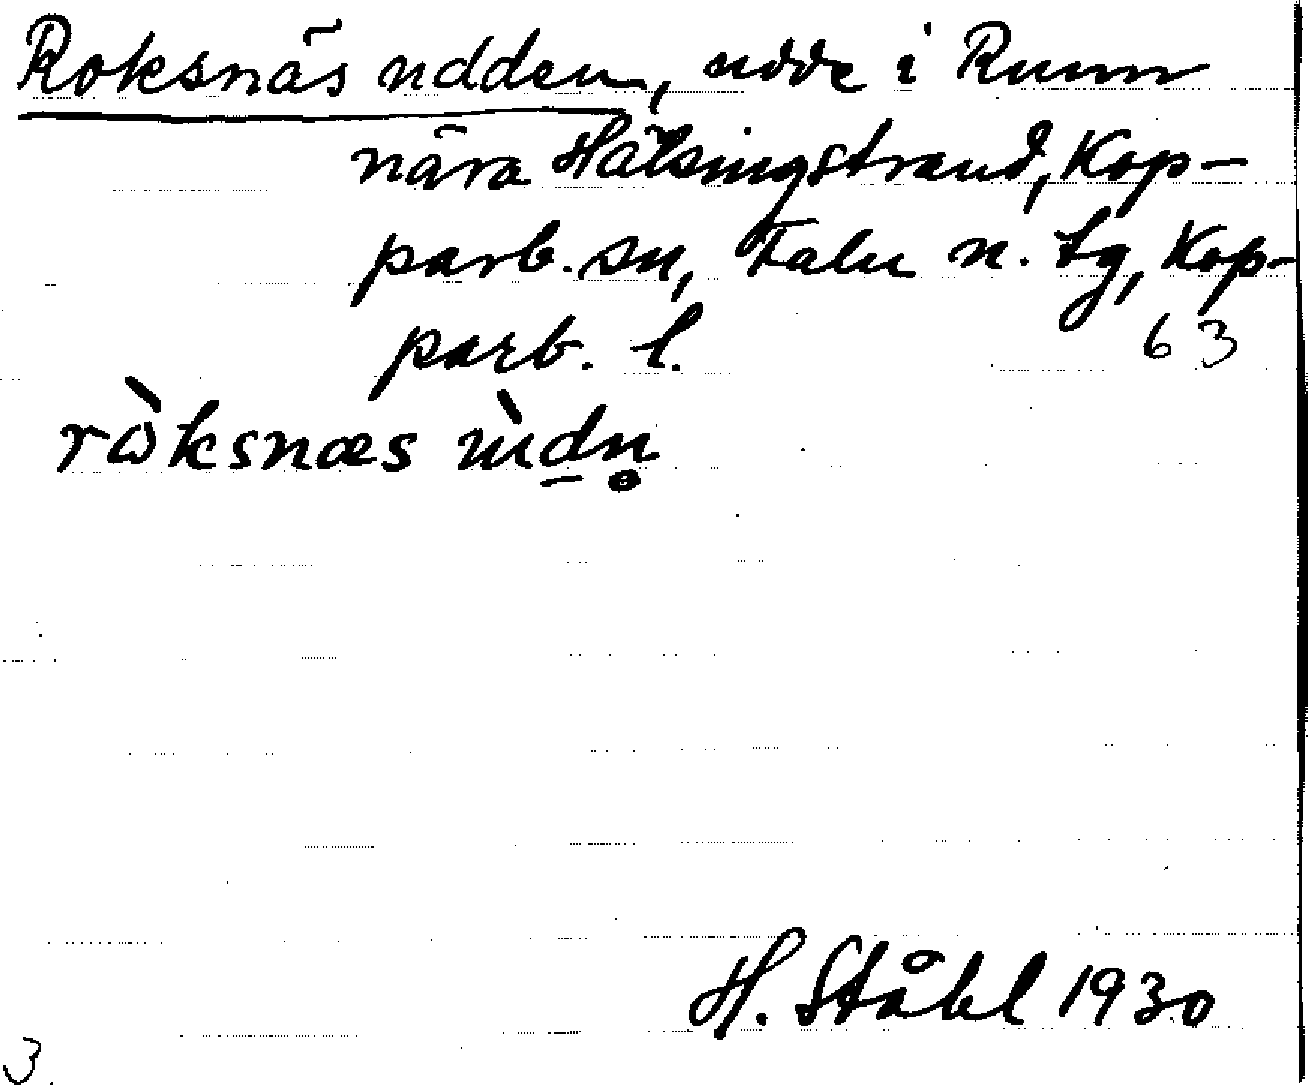 Roksnäs udden, udde i Runn
nära Hälsingstrand, Kop-
parb. sn, Falu n. tg, Kop-
parb. l.
63
ròksnæs ùdṇ
H. Ståhl 1930
3.